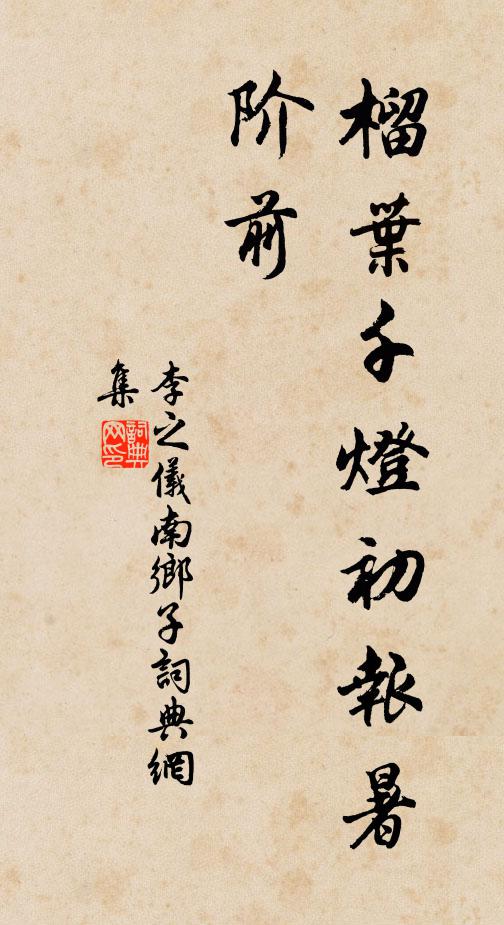 榴葉千燈初報暑
阶前
李之儀南鄉子詞典網
集
詞典网印